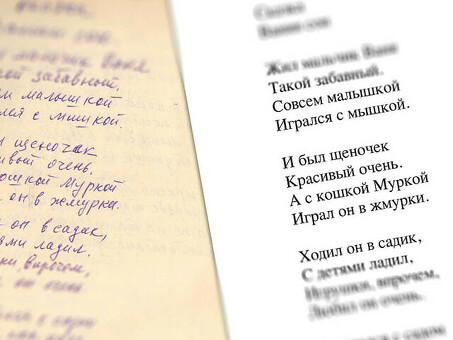 мальчик Ваня
ой забавный.
м малышкой
лся с мышкой.
щеночек
ивый очень.
ошкой Муркой
он в жмурки.
он в садик,
ями ладил.
ки, впрочем,
он очень.
Сказка
Ванин сон
Жил мальчик Ваня
Такой забавный.
Совсем малышкой
Игрался с мышкой.
И был щеночек
Красивый очень.
А с кошкой Муркой
Играл он в жмурки.
Ходил он в садик,
С детями ладил,
Игрушки, впрочем,
Любил он очень.
с садом